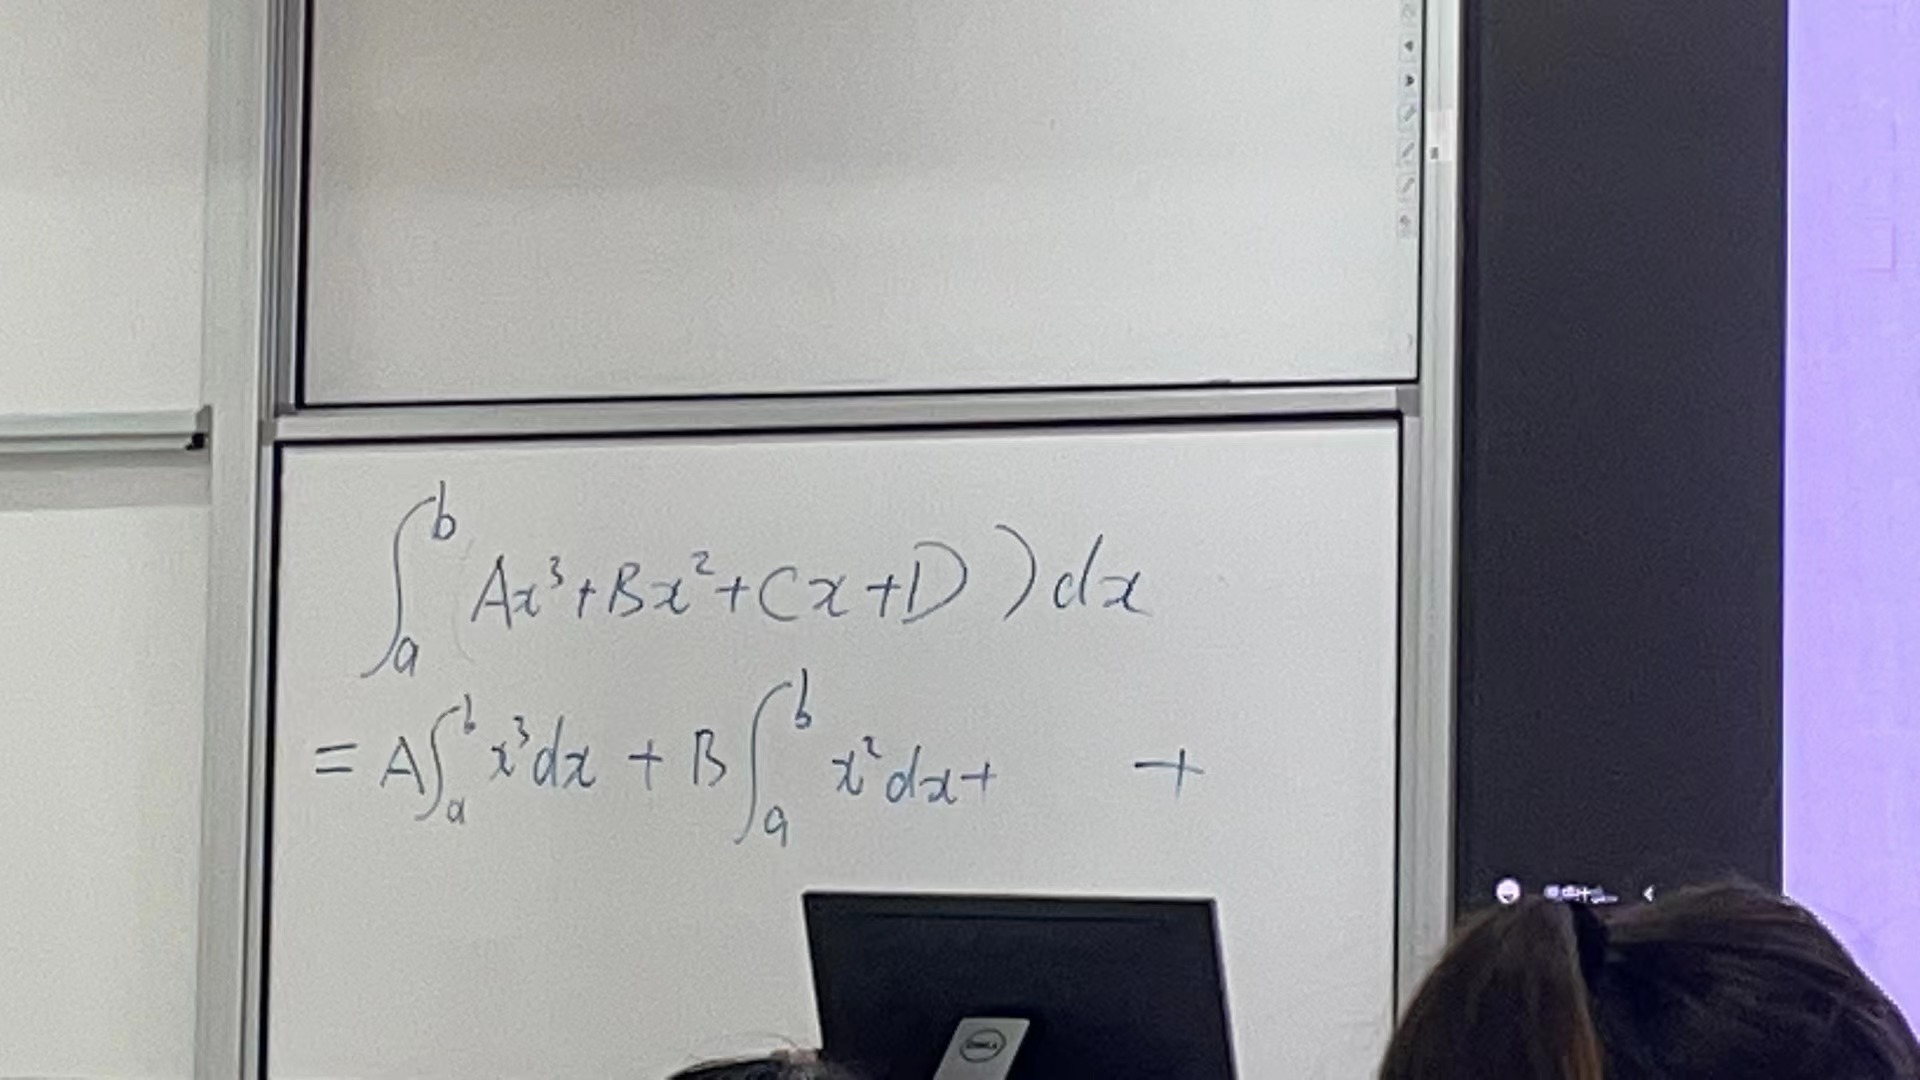 ∫_a^b (Ax³+Bx²+Cx+D)dx
= A∫_a^b x³dx + B∫_a^b x²dx+ +
DELL